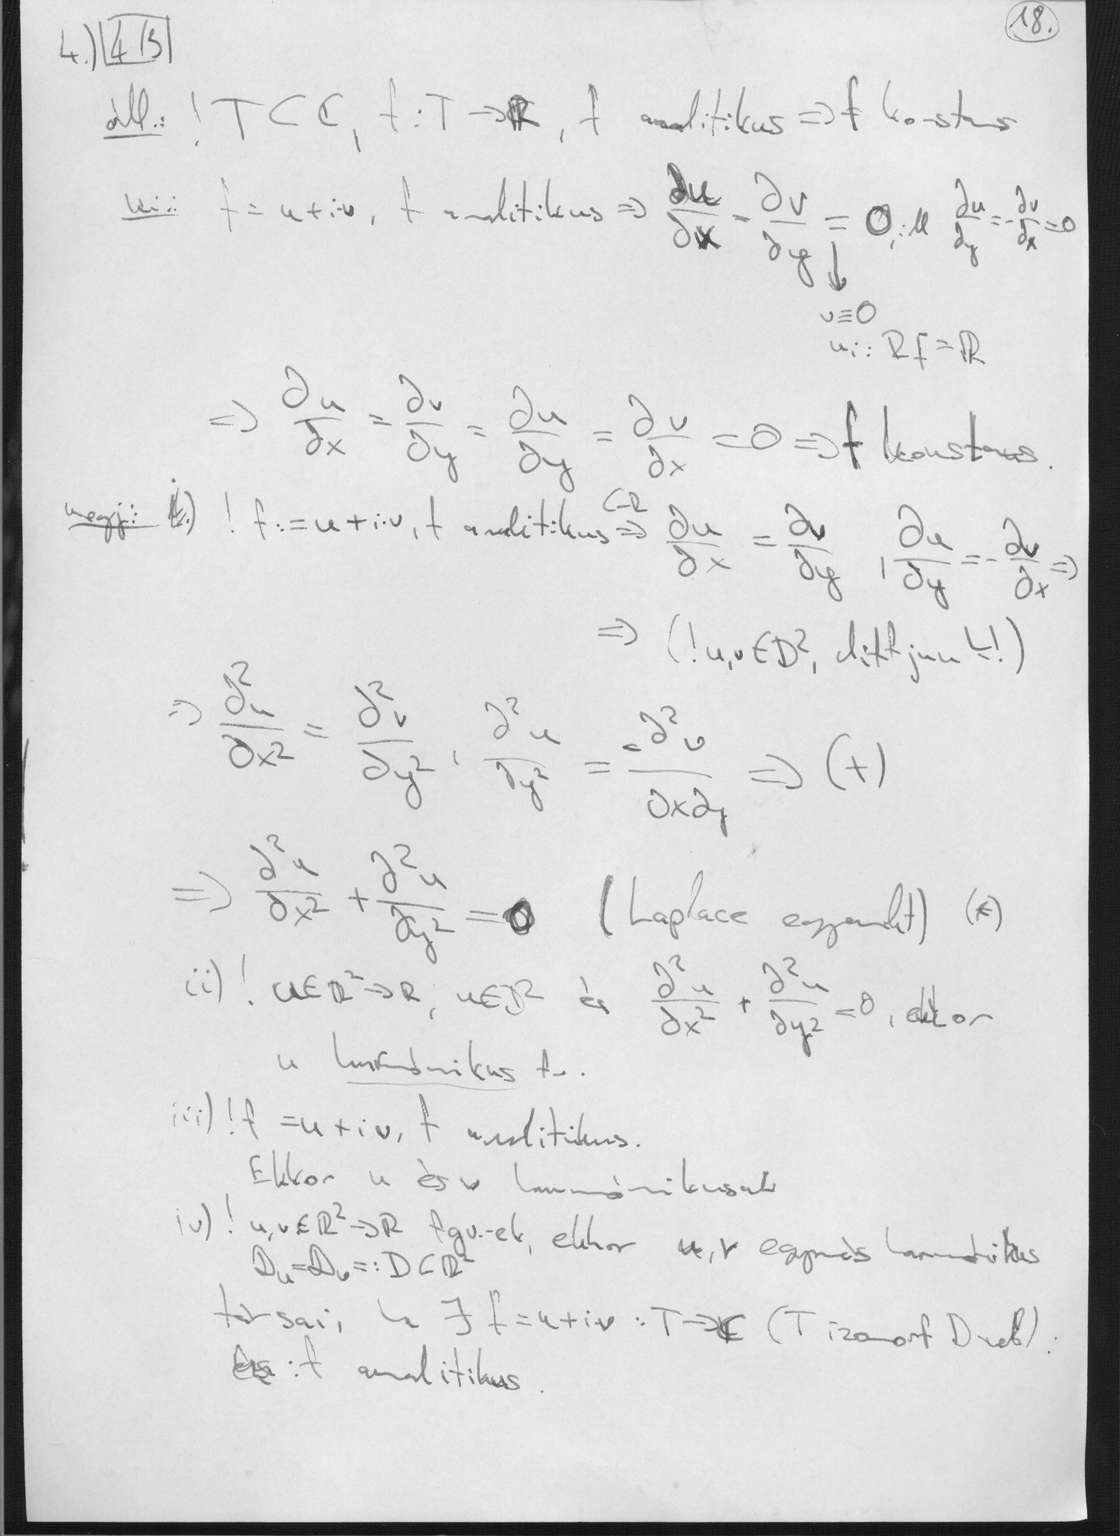 18.
4.) 4/5
áll.: ! T ⊂ ℂ, f : T → ℝ, f analitikus ⇒ f konstans
f = u + i·v, f analitikus ⇒ ∂u/∂x = ∂v/∂y = 0, ∂u/∂y = -∂v/∂x = 0
v ≡ 0
ui.: R_f = ℝ
⇒ ∂u/∂x = ∂v/∂y = ∂u/∂y = ∂v/∂x = 0 ⇒ f konstans.
megj.: i.) ! f := u + i·v, f analitikus ⇒ (C-R) ∂u/∂x = ∂v/∂y , ∂u/∂y = -∂v/∂x ⇒
⇒ (! u,v ∈ D², diffjunk!)
⇒ ∂²u/∂x² = ∂²v/∂y² , ∂²u/∂y² = -∂²v/∂x∂y ⇒ (+)
⇒ ∂²u/∂x² + ∂²u/∂y² = 0 (Laplace egyenlet) (*)
ii) ! u ∈ ℝ² → ℝ, u ∈ D² és ∂²u/∂x² + ∂²u/∂y² = 0, ekkor
u harmónikus fv.
iii) ! f = u + iv, f analitikus.
Ekkor u és v harmónikusak
iv) ! u,v ∈ ℝ² → ℝ fgv.-ek, ekkor u,v egymás harmónikus
D_u = D_v =: D ⊂ ℝ²
társai, ha ∃ f = u + iv : T → ℂ (T izomorf D-vel).
és f analitikus.